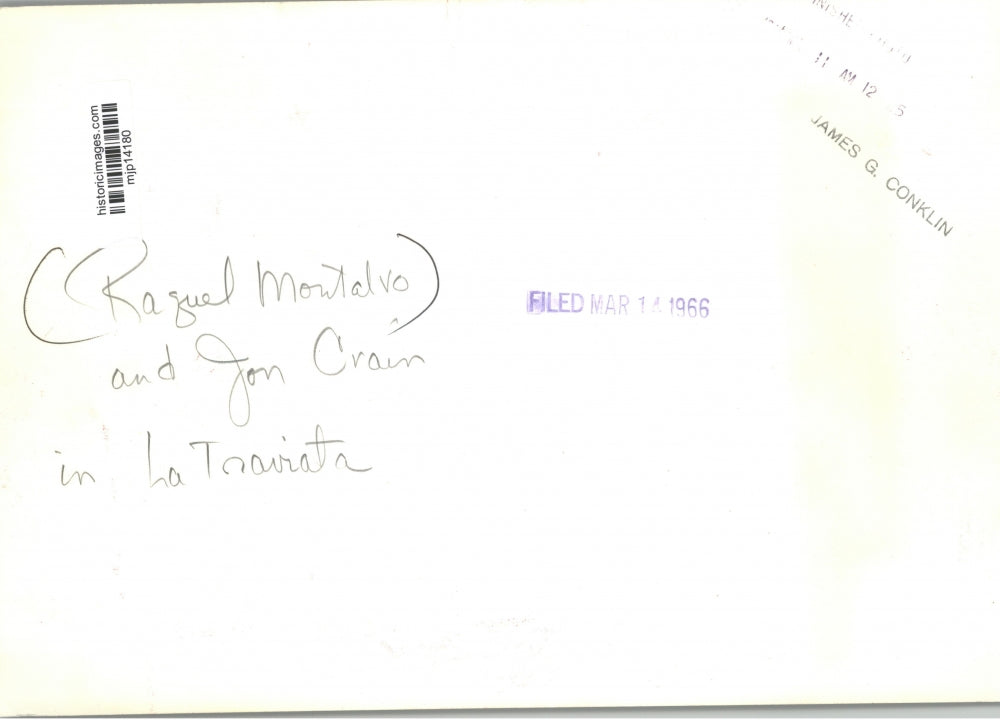 historicimages.com
mjp14180
AM 12
JAMES G. CONKLIN
(Raquel Montalvo)
and Jon Crain
in La Traviata
FILED MAR 14 1966